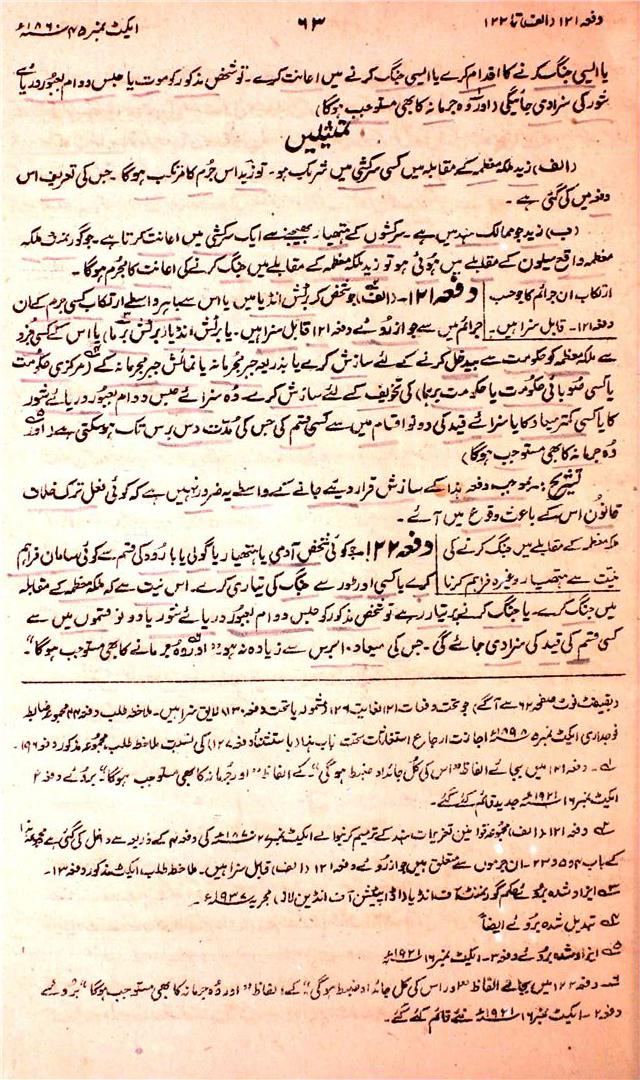 دفعہ ۱۲۱ (الف) تا ۱۲۲
۶۳
ایکٹ نمبر ۴۵ ۱۸۶۰ء
یا ایسی جنگ کرنے کا اقدام کرے یا ایسی جنگ کرنے میں اعانت کرے۔ تو شخص مذکور کو موت یا حبس دوام بعبور دریائے
شور کی سزا دی جائیگی (اور وہ جرمانہ کا بھی مستوجب ہوگا)
تمثیلیں
(الف) زید ملکہ معظمہ کے مقابلہ میں کسی سرکشی میں شریک ہو۔ تو زید اس جرم کا مرتکب ہوگا۔ جس کی تعریف اس
دفعہ میں کی گئی ہے۔
(ب) زید جو ممالک ہند میں ہے۔ سرکشوں کے ہتھیار بھیجنے سے ایک سرکشی میں اعانت کرتا ہے۔ جو گورنمنٹ ملکہ
معظمہ واقع سیلون کے مقابلے میں ہوئی ہو تو زید ملکہ معظمہ کے مقابلے میں جنگ کرنے کی اعانت کا مجرم ہوگا۔
ارتکاب ان جرائم کا جو حسب
دفعہ ۱۲۱۔ (الف) جو شخص کہ برٹش انڈیا میں یا اس سے باہر واسطے ارتکاب کسی جرم کے ان
دفعہ ۱۲۱۔ قابل سزا ہیں۔
جرائم میں سے جو از روئے دفعہ ۱۲۱ قابل سزا ہیں۔ یا برٹش انڈیا (برٹش برما) یا اس کے کسی جزو
سے ملکہ معظمہ کو حکومت سے بیدخل کرنے کے لئے سازش کرے یا بذریعہ جبر مجرمانہ یا نمائش جبر مجرمانہ کے (مرکزی حکومت
یا کسی صوبائی حکومت یا حکومت برما) کی تخویف کے لئے سازش کرے۔ وہ سزائے حبس دوام بعبور دریائے شور
کا یا کسی کمتر میعاد کا یا سزائے قید کی دونو اقسام میں سے کسی قسم کی جس کی مدت دس برس تک ہو سکتی ہے (اور
وہ جرمانہ کا بھی مستوجب ہوگا)
تشریح:۔ بموجب دفعہ ہذا کے سازش قرار دیئے جانے کے واسطے یہ ضرور نہیں ہے کہ کوئی فعل ترک خلاف
قانون اس کے باعث وقوع میں آئے۔
ملکہ معظمہ کے مقابلے میں جنگ کرنے کی
دفعہ ۱۲۲۔ جو کوئی شخص آدمی یا ہتھیار یا گولی یا بارود کی قسم سے کوئی سامان فراہم
نیت سے ہتھیار وغیرہ فراہم کرنا
کرے یا کسی اور طور سے جنگ کی تیاری کرے۔ اس نیت سے کہ ملکہ معظمہ کے مقابلہ
میں جنگ کرے۔ یا جنگ کرنے پر تیار رہے تو شخص مذکور کو حبس دوام بعبور دریائے شور یا دونو قسموں میں سے
کسی قسم کی قید کی سزا دی جائے گی۔ جس کی میعاد ۱۰ برس سے زیادہ نہ ہو "اور وہ جرمانے کا بھی مستوجب ہوگا"۔
(بقیہ فٹ نوٹ صفحہ ۶۲ سے آگے) جو تحت دفعات ۱۲۱ لغایت ۱۲۶ (شمولہ یا تحت دفعہ ۱۳۰ لائق سزا ہیں۔ ملاحظہ طلب دفعہ ۴۴ مجموعہ ضابطہ
فوجداری ایکٹ نمبر ۵ ۱۸۹۸ء اجازت ارجاع استغاثہ تحت باب ہذا (باستثناء دفعہ ۱۲۷) کی نسبت ملاحظہ طلب مجموعہ مذکور دفعہ ۱۹۶۔
۱۔ دفعہ ۱۲۱ میں بجائے الفاظ "اس کی کل جائداد ضبط ہوگی"۔ کے الفاظ "اور جرمانہ کا بھی مستوجب ہوگا"۔ بروئے دفعہ ۲
ایکٹ نمبر ۱۶ ۱۹۲۱ء جدید قائم کئے گئے۔
۲۔ دفعہ ۱۲۱ (الف) مجموعہ قوانین تعزیرات ہند کے ترمیم کرنیوالے ایکٹ نمبر ۲۷ ۱۸۷۰ء کی دفعہ ۴ کے ذریعہ سے داخل کی گئی ہے مجموعہ
کے باب ۴ و ۵ و ۲۳۔ ان جرموں سے متعلق ہیں جو از روئے دفعہ ۱۲۱ (الف) قابل سزا ہیں۔ ملاحظہ طلب ایکٹ مذکور دفعہ ۱۳۔
۳۔ ایزاد شدہ بروئے حکم گورنمنٹ آف انڈیا (اڈاپٹیشن آف انڈین لاز) مجریہ ۱۹۳۷ء۔
۴۔ تبدیل شدہ بروئے ایضاً
۵۔ ایزاد شدہ بروئے دفعہ ۳۔ ایکٹ نمبر ۱۶ ۱۹۲۱ء
۶۔ دفعہ ۱۲۲ میں بجائے الفاظ "اور اس کی کل جائداد ضبط ہوگی" کے الفاظ "اور وہ جرمانہ کا بھی مستوجب ہوگا" بروئے
دفعہ ۲۔ ایکٹ نمبر ۱۶ ۱۹۲۱ء نئے قائم کئے گئے۔